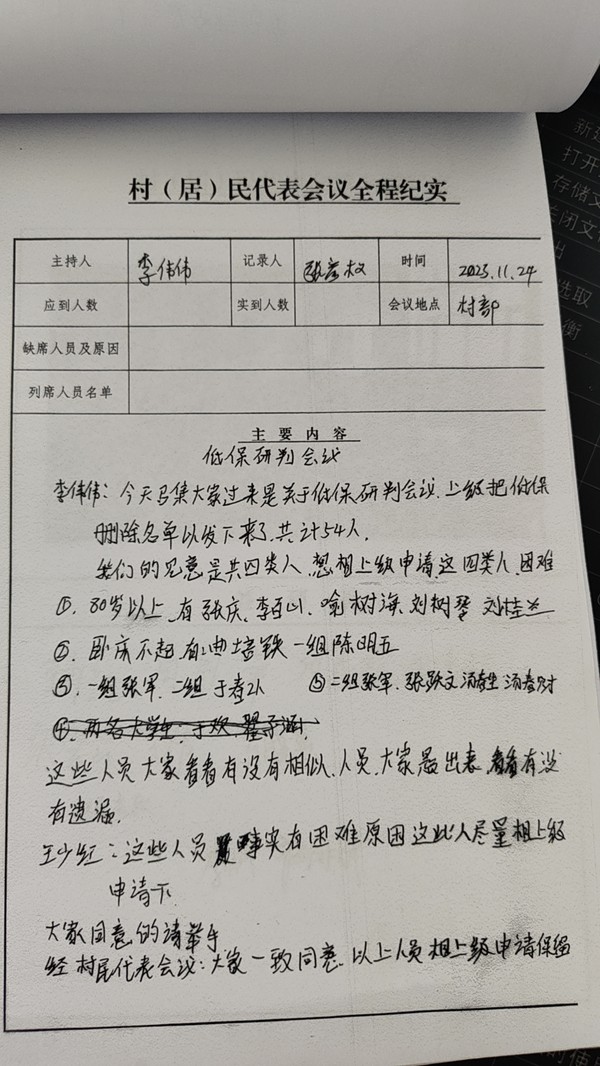 村（居）民代表会议全程纪实
主持人 李伟伟 记录人 张彦权 时间 2023.11.24
应到人数 实到人数 会议地点 村部
缺席人员及原因
列席人员名单
主要内容
低保研判会议
李伟伟：今天召集大家过来是关于低保研判会议.上级把低保
删除名单以发下来了.共计54人.
我们的见意是共四类人.想相上级申请.这四类人.困难
①.80岁以上.有张庆.李百山.喻树海.刘树琴 刘桂兰
②.卧床不起.有:典培铁 一组陈明五
③.一组张军.二组于孝 ⑤二组张军.张跃文 汤春生 汤春财
④.两名大学生.于欢.翟子涵.
这些人员大家看看有没有相似.人员.大家 出来.看看有没
有遗漏.
王少红：这些人员 事实有困难原因这些人尽量相上级
申请下
大家同意的请举手
经村民代表会议:大家一致同意.以上人员相上级申请保留